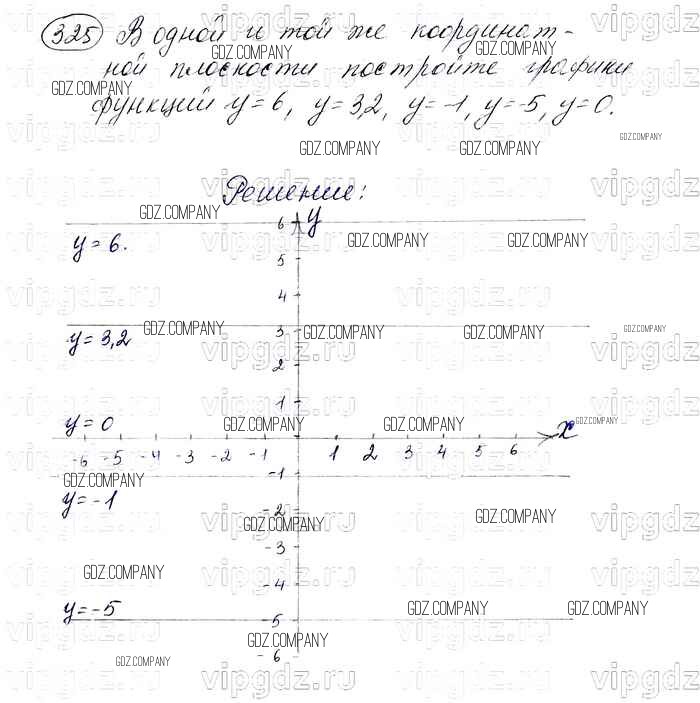 325 В одной и той же координат-
ной плоскости постройте графики
функций y=6, y=3,2, y=-1, y=-5, y=0.
Решение:
y
6
y=6.
5
4
3
y=3,2
2
1
y=0
x
-6 -5 -4 -3 -2 -1 1 2 3 4 5 6
-1
y=-1
-2
-3
-4
y=-5
-5
-6
GDZ.COMPANY
vipgdz.ru